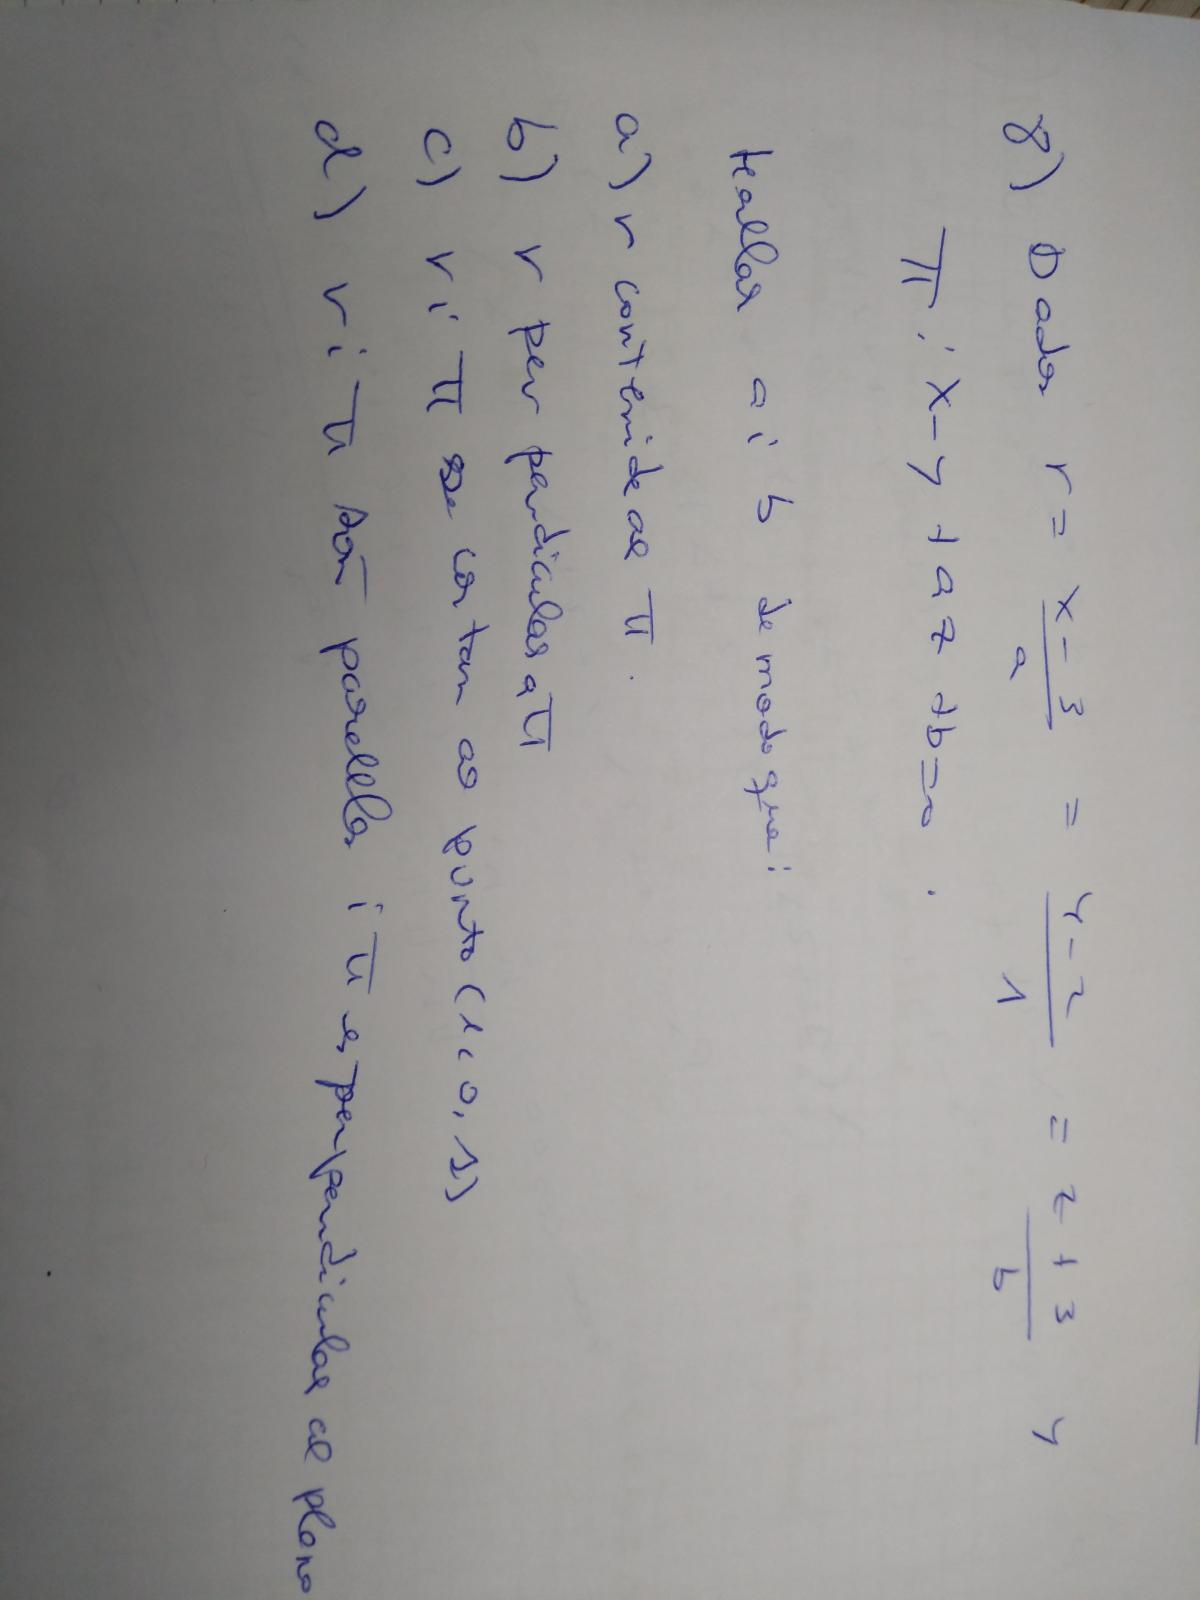 8) Dados r = x-3/a = y-2/1 = z+3/b y
π: x-y+az+b=0.
Hallar a i b de modo que:
a) r contenida al π.
b) r perpendicular a π
c) r i π se cortan al punto (1,0,1)
d) r i π són paralelos i π es perpendicular al plano